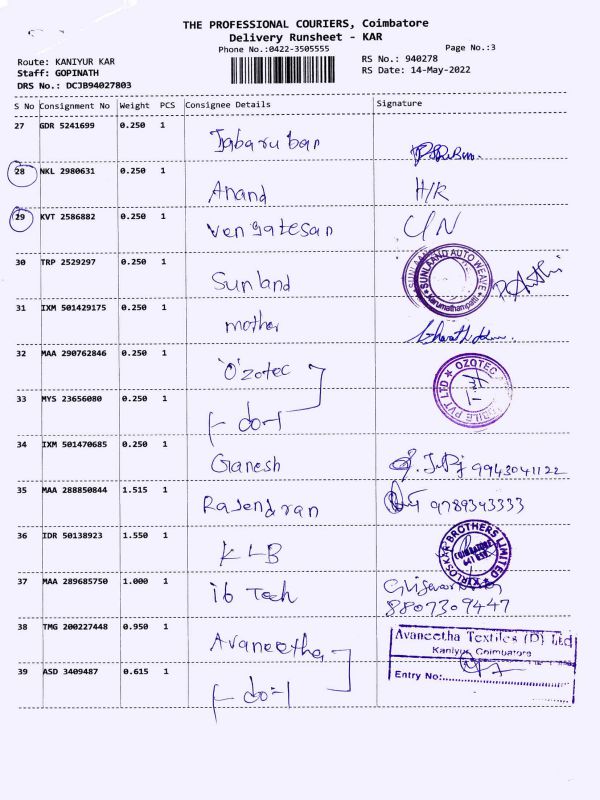 THE PROFESSIONAL COURIERS, Coimbatore
Delivery Runsheet - KAR
Phone No.:0422-3505555
Page No.:3
Route: KANIYUR KAR
RS No.: 940278
Staff: GOPINATH
RS Date: 14-May-2022
DRS No.: DCJB94027803
S No Consignment No Weight PCS Consignee Details Signature
27 GDR 5241699 0.250 1 Jabaruban
28 NKL 2980631 0.250 1 Anand H/R
29 KVT 2586882 0.250 1 Vengatesan U/N
30 TRP 2529297 0.250 1 Sunland SUNLAAND AUTO WEAVE Karumathampatti
31 IXM 501429175 0.250 1 mother
32 MAA 290762846 0.250 1 'O'zotec OZOTEC PVT LTD
33 MYS 23656080 0.250 1 (-do-)
34 IXM 501470685 0.250 1 Ganesh 9943041122
35 MAA 288850844 1.515 1 Rajendran 9789343333
36 IDR 50138923 1.550 1 KLB KIRLOSKAR BROTHERS LIMITED COIMBATORE
37 MAA 289685750 1.000 1 ib Tech 8807309447
38 TMG 200227448 0.950 1 Avaneetha Avaneetha Textiles (P) Ltd
Kaniyur, Coimbatore
39 ASD 3409487 0.615 1 (-do-) Entry No: